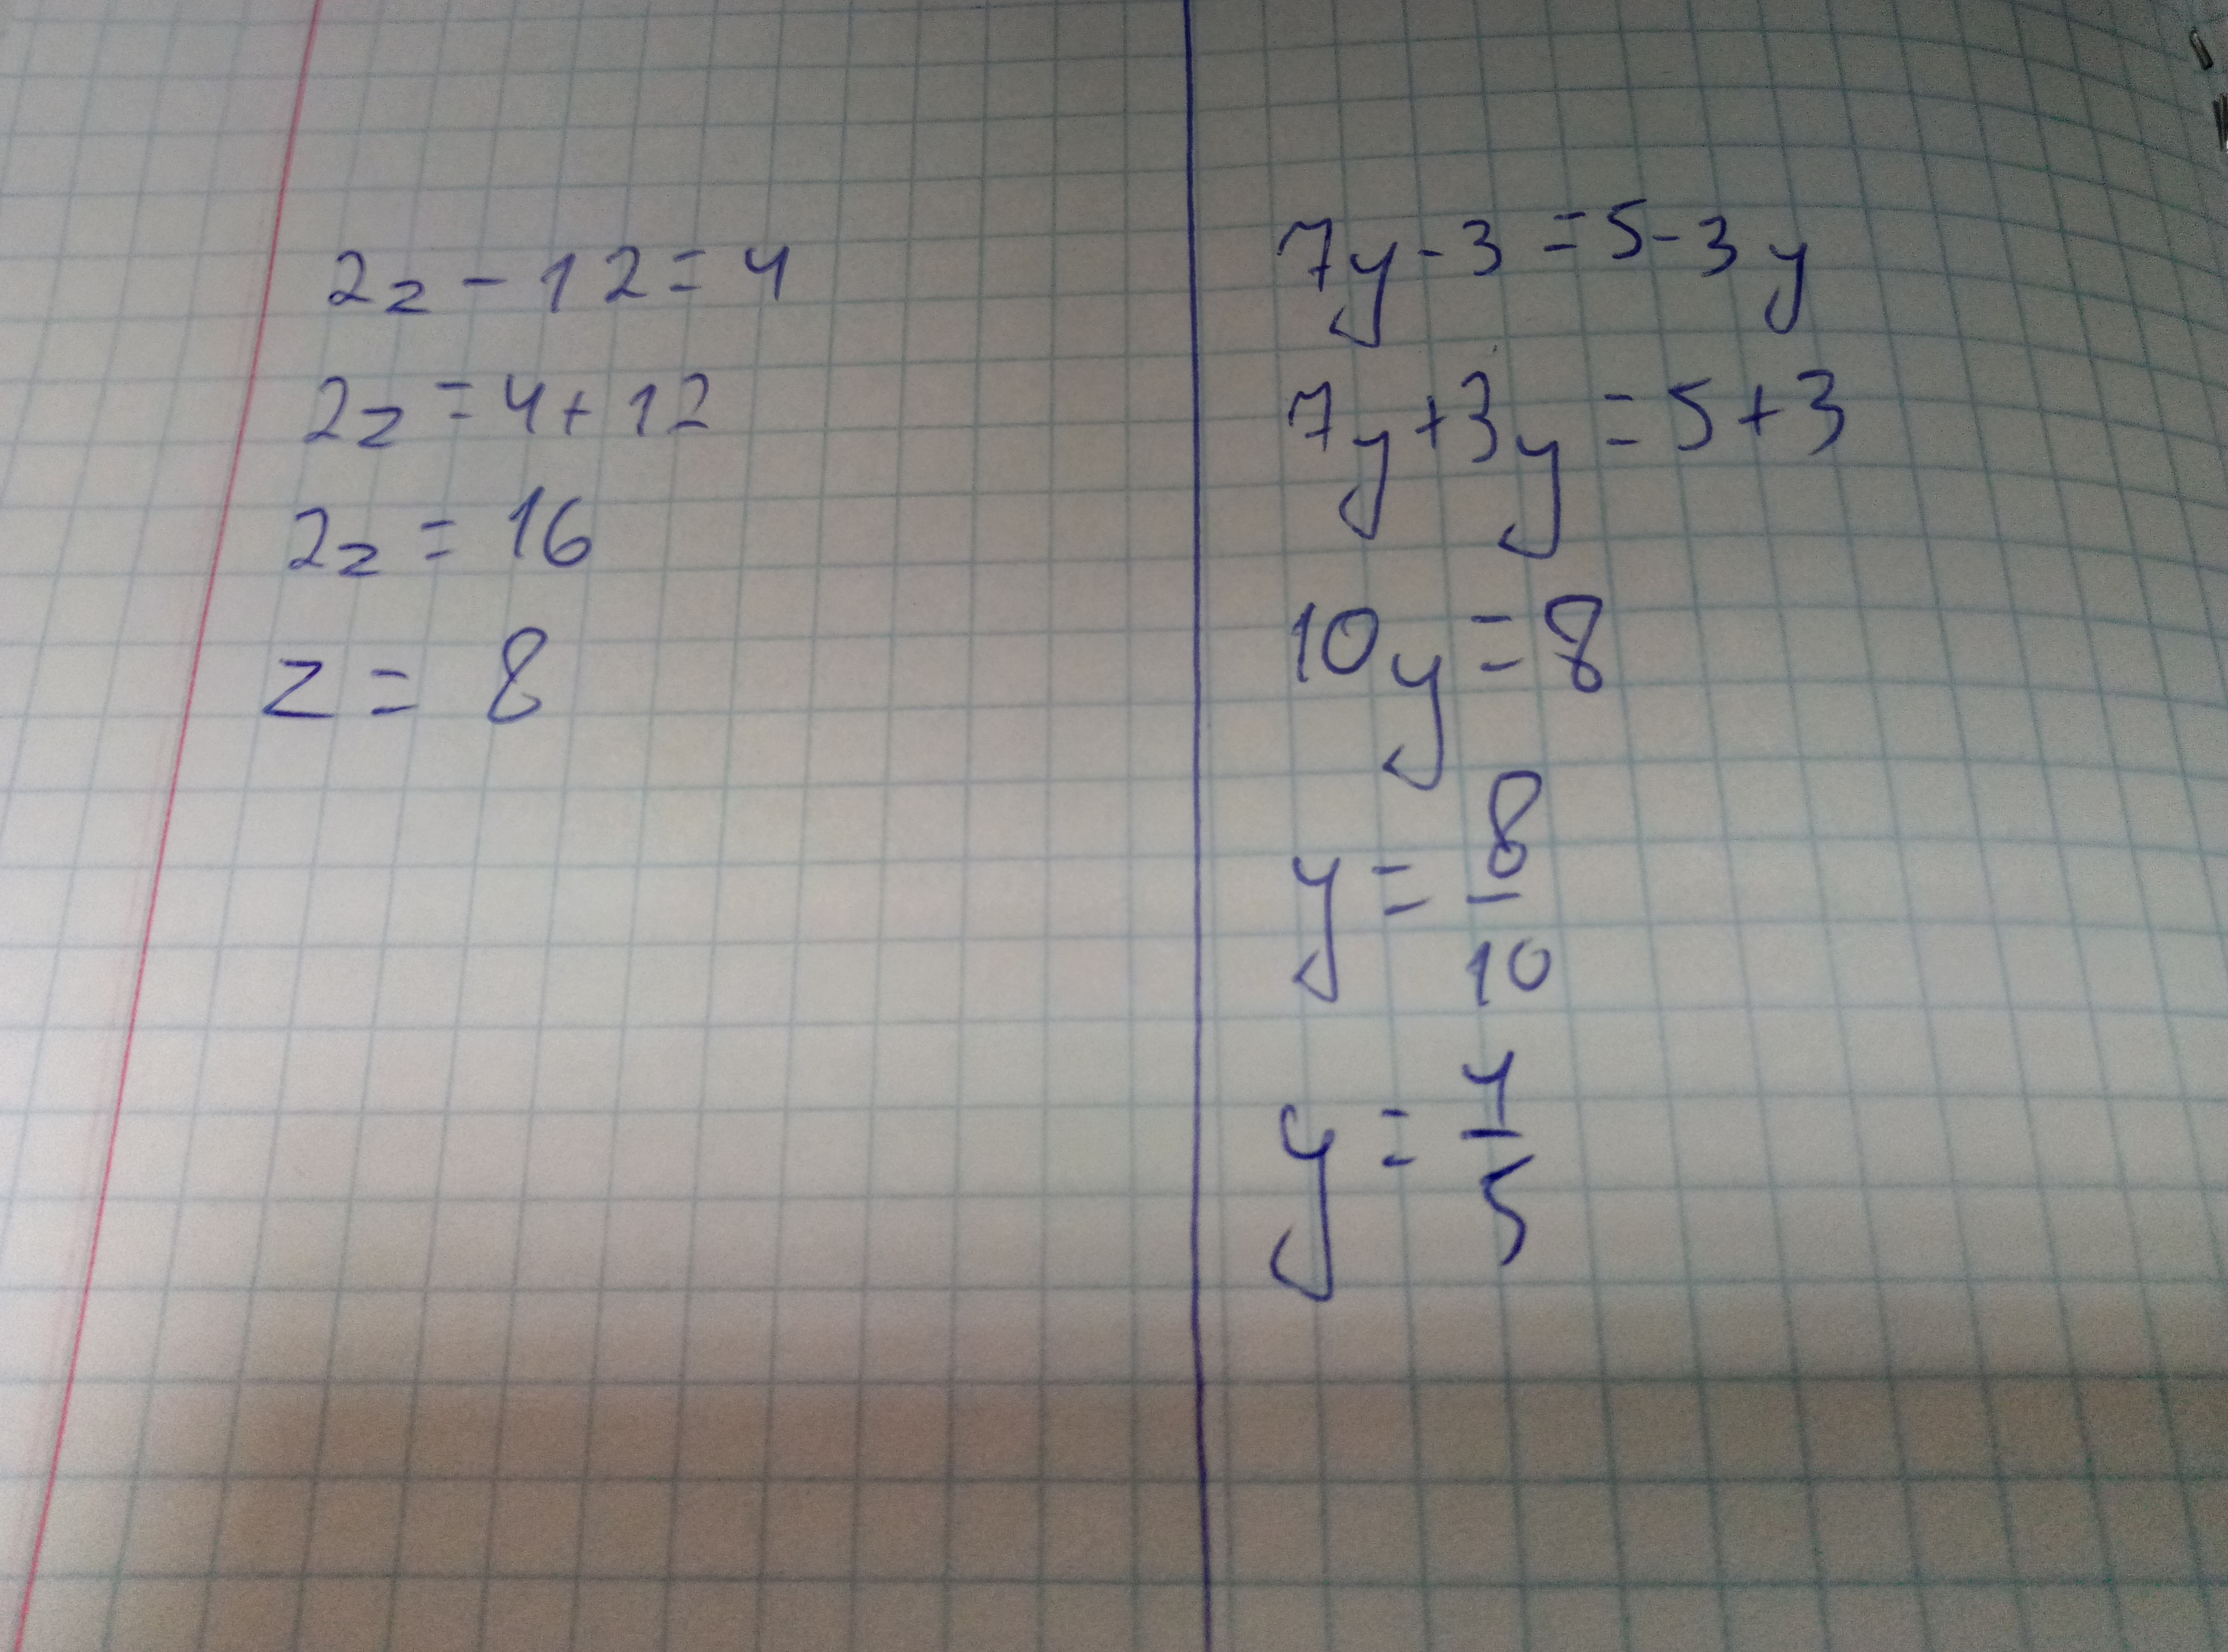 2z - 12 = 4
2z = 4 + 12
2z = 16
z = 8
7y - 3 = 5 - 3y
7y + 3y = 5 + 3
10y = 8
y = 8/10
y = 4/5